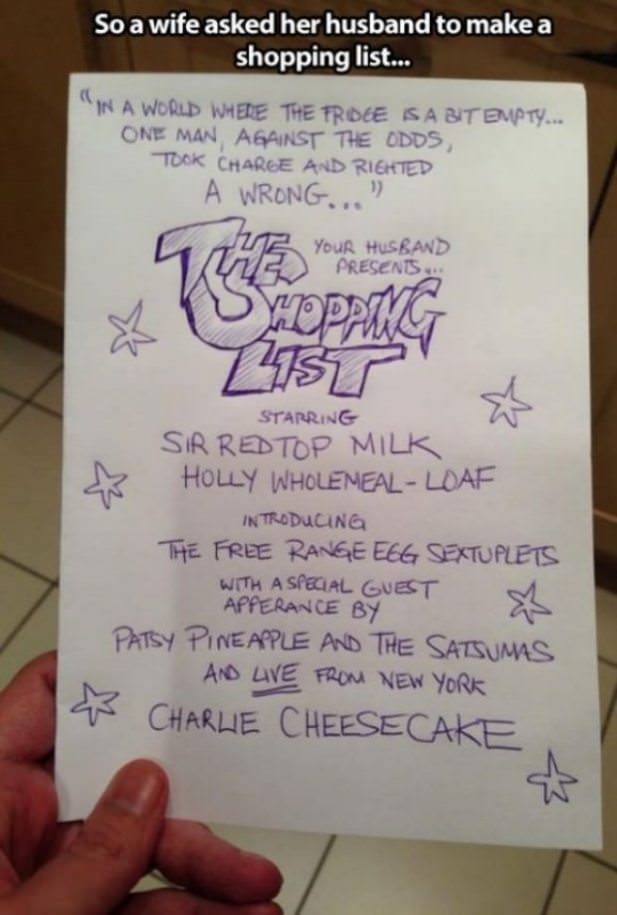 So a wife asked her husband to make a
shopping list...
"IN A WORLD WHERE THE FRIDGE IS A BIT EMPTY...
ONE MAN, AGAINST THE ODDS,
TOOK CHARGE AND RIGHTED
A WRONG..."
YOUR HUSBAND
PRESENTS...
THE
SHOPPING
LIST
STARRING
SIR REDTOP MILK
HOLLY WHOLEMEAL-LOAF
INTRODUCING
THE FREE RANGE EGG SEXTUPLETS
WITH A SPECIAL GUEST
APPERANCE BY
PATSY PINEAPPLE AND THE SATSUMAS
AND LIVE FROM NEW YORK
CHARLIE CHEESECAKE